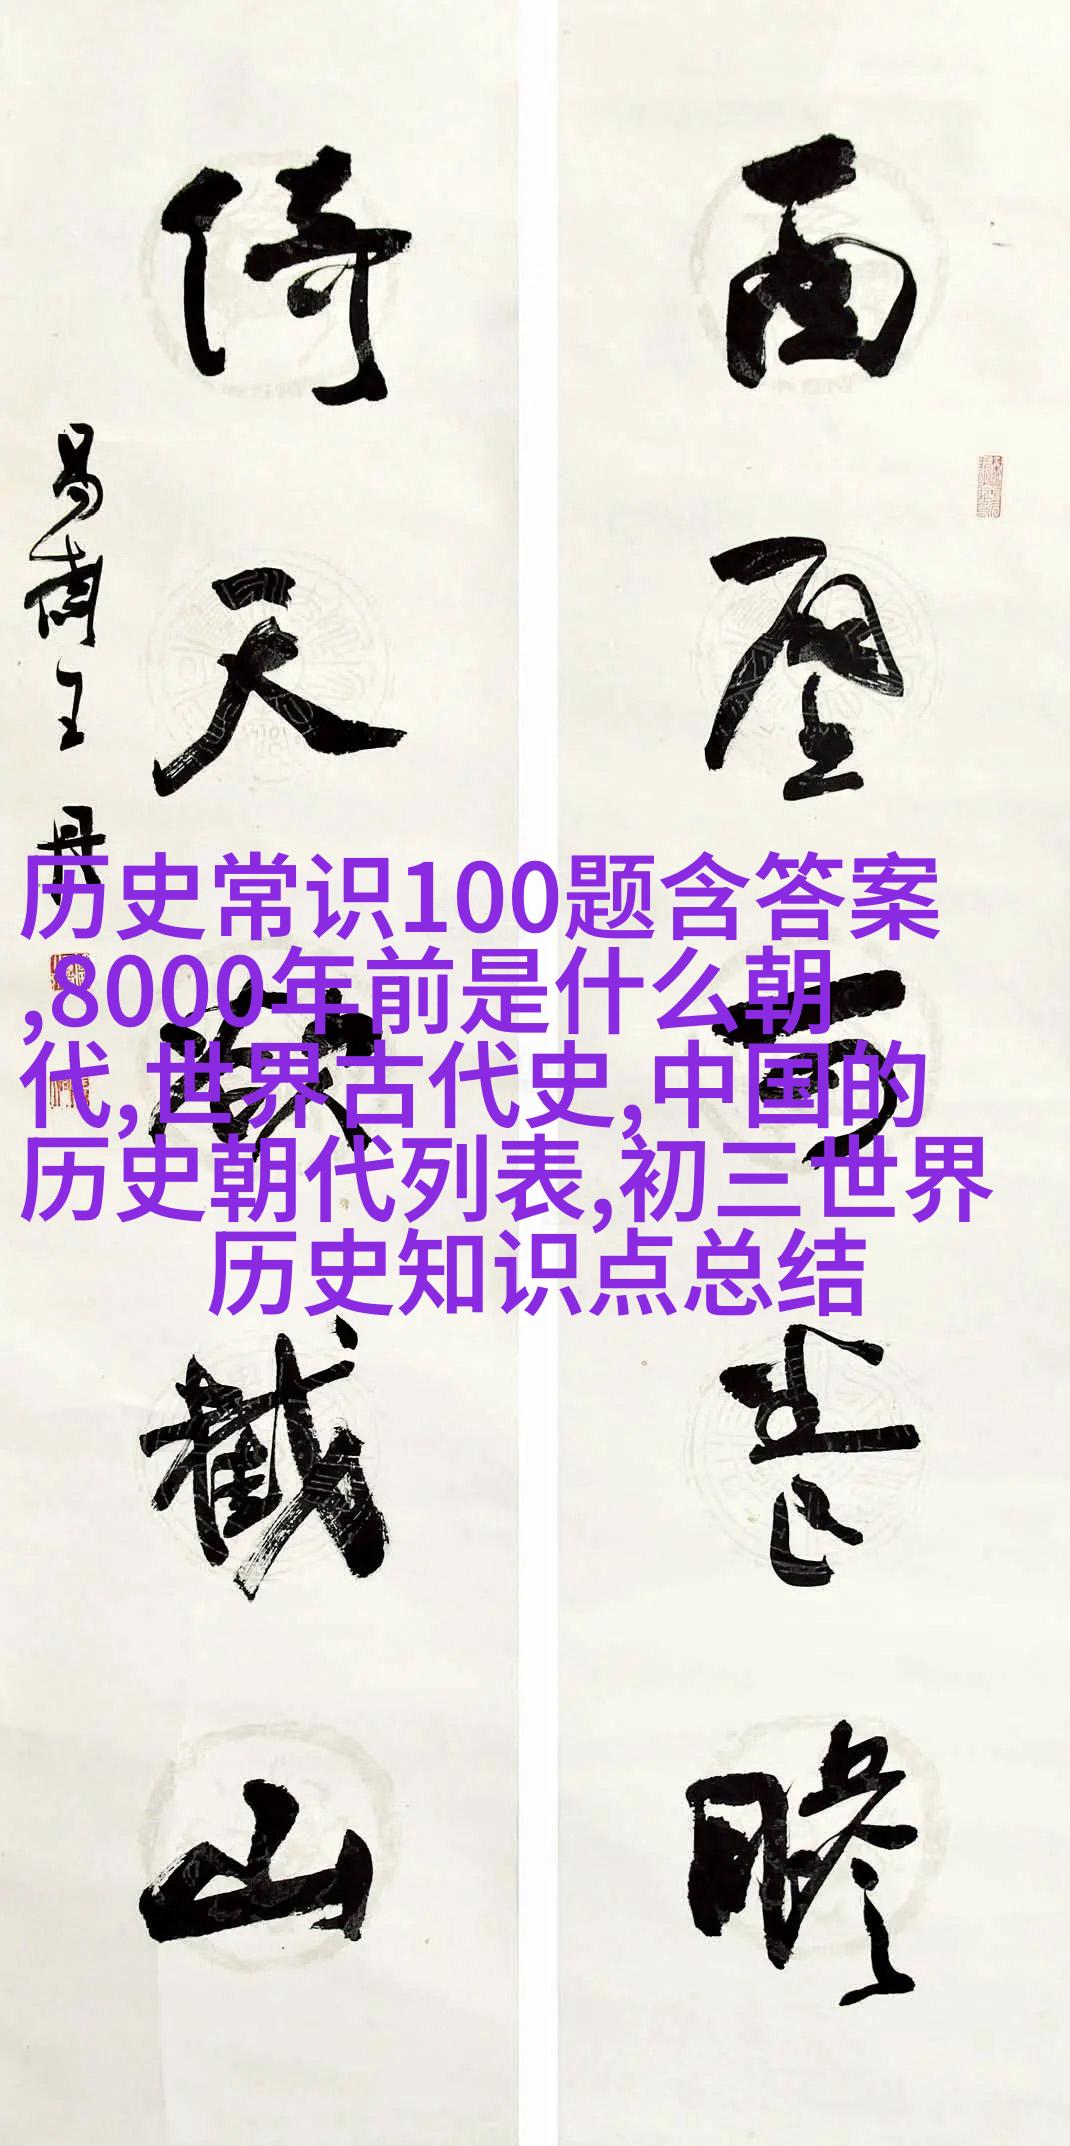 面壁瞻
倚天截山
历史常识100题含答案
,8000年前是什么朝
代,世界古代史,中国的
历史朝代列表,初三世界
历史知识点总结